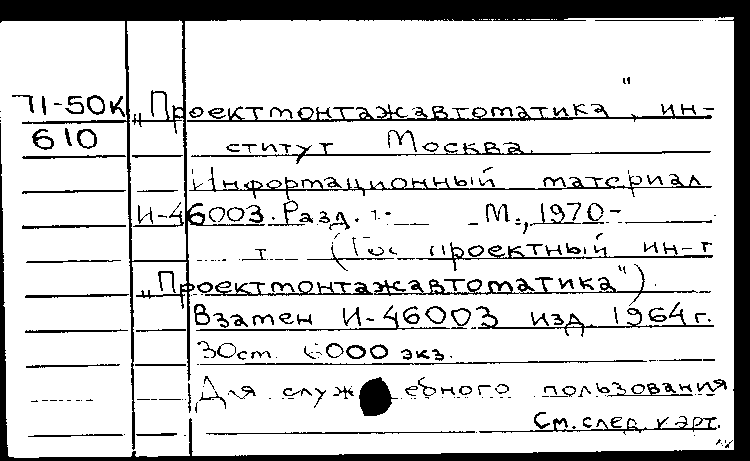 71-50К „Проектмонтажавтоматика", ин-
610 ститут Москва.
Информационный материал
И-46003. Разд. 1. М., 1970-
т (Гос проектный ин-т
„Проектмонтажавтоматика").
Взамен И-46003 изд. 1964 г.
30 ст. 6000 экз.
Для служебного пользования
См. след. карт.